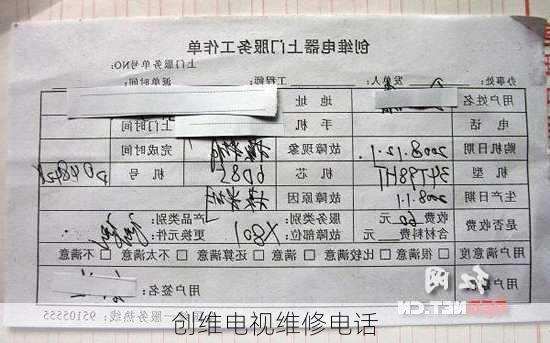 创维电器上门服务工作单
办事处: 发单人: 工程师: 派单时间: 上门服务单号NO:
用户姓名 地 址
电 话 手 机 上门时间
购机日期 2008.12.1 故障现象 完成时间
机 型 34T98HT 机 芯 6D85 机 号
生产日期 2008.1.1 故障原因
是否收费 收费 60 元 服务类别: 产品类别:
含材料费 元 故障部位: X801 更换元件:
用户满意度 满意 □ 很满意 □ 比较满意 □ 还算满意 □ 不太满意 □ 不满意
用户签名
服务热线:95105555
红网
RED.NET.CN
创维电视维修电话